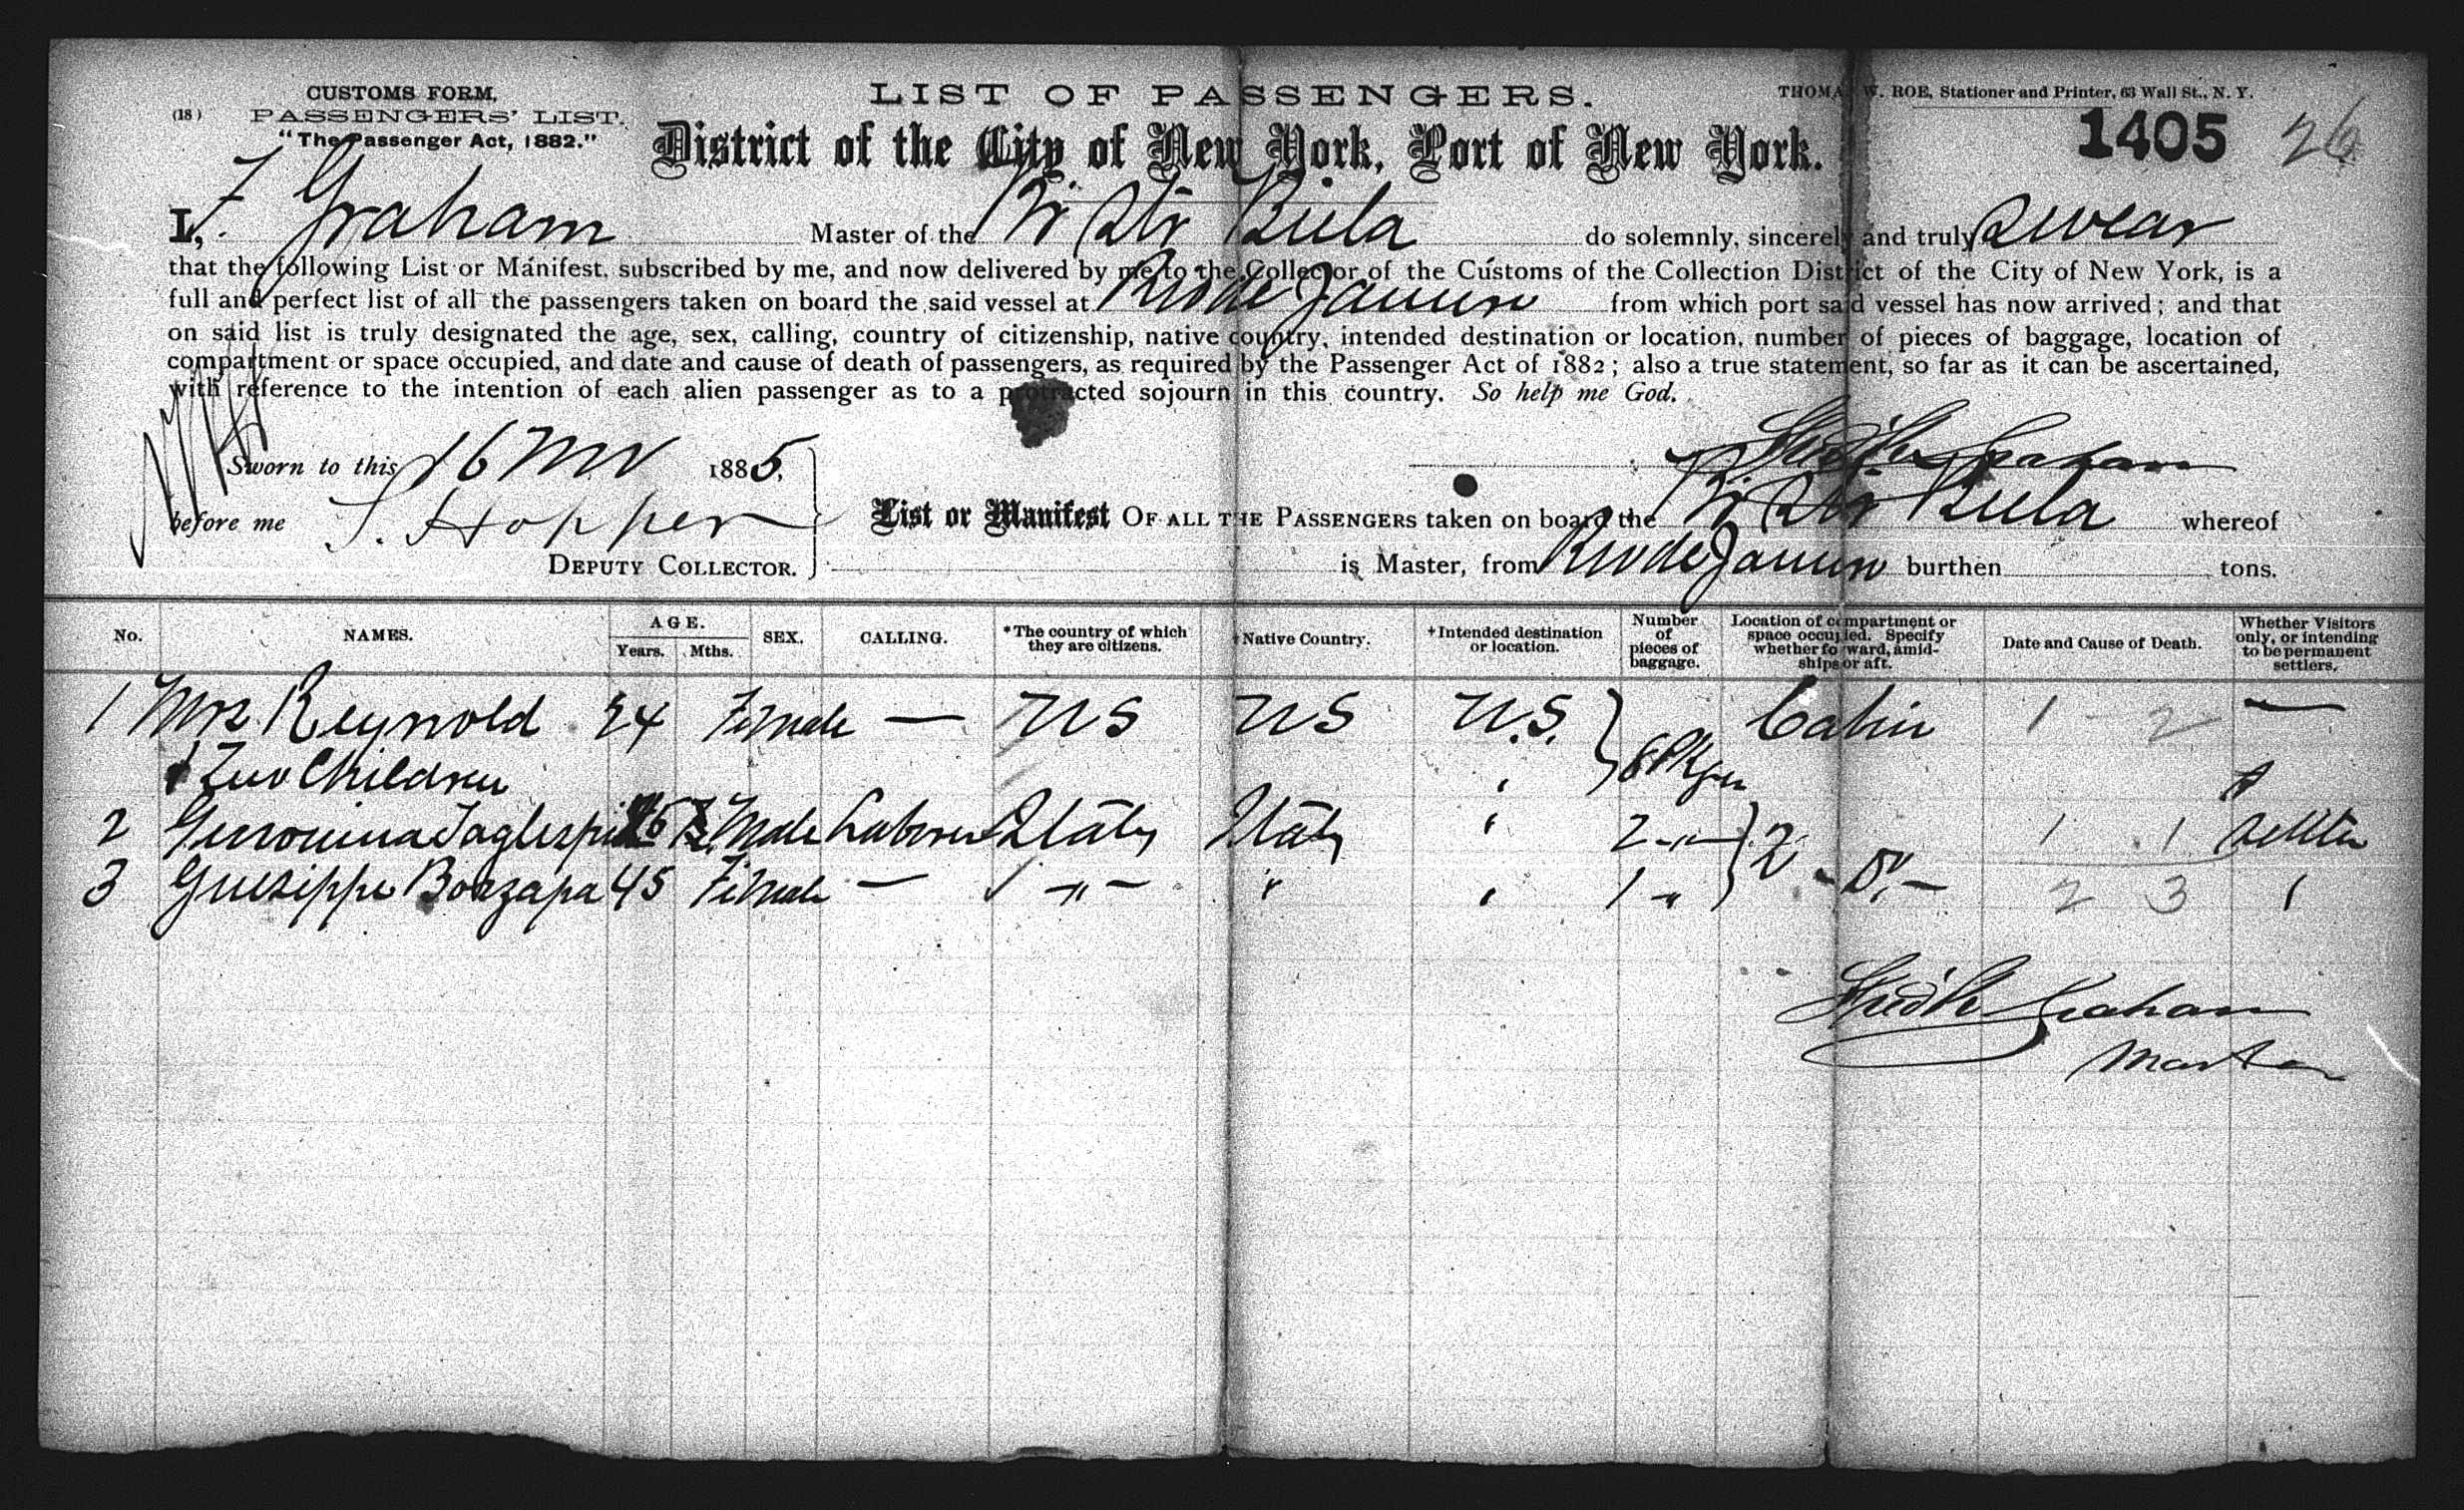 CUSTOMS FORM.
(18) PASSENGERS' LIST.
"The Passenger Act, 1882."
LIST OF PASSENGERS.
THOMAS W. ROE, Stationer and Printer, 63 Wall St., N. Y.
District of the City of New York, Port of New York.
1405 26
I, F Graham Master of the Br Str Biela do solemnly, sincerely and truly Swear
that the following List or Manifest, subscribed by me, and now delivered by me to the Collector of the Customs of the Collection District of the City of New York, is a
full and perfect list of all the passengers taken on board the said vessel at Rio de Janeiro from which port said vessel has now arrived; and that
on said list is truly designated the age, sex, calling, country of citizenship, native country, intended destination or location, number of pieces of baggage, location of
compartment or space occupied, and date and cause of death of passengers, as required by the Passenger Act of 1882; also a true statement, so far as it can be ascertained,
with reference to the intention of each alien passenger as to a protracted sojourn in this country. So help me God.
Sworn to this 16 Nov 1885,
before me S. Hopper
DEPUTY COLLECTOR.
Graham
List or Manifest OF ALL THE PASSENGERS taken on board the Br Str Biela whereof
is Master, from Rio de Janeiro burthen tons.
No. NAMES. AGE. Years. Mths. SEX. CALLING. *The country of which they are citizens. †Native Country. †Intended destination or location. Number of pieces of baggage. Location of compartment or space occupied. Specify whether forward, amidships or aft. Date and Cause of Death. Whether Visitors only, or intending to be permanent settlers.
1 Mrs. Reynold 24 Female — US US U.S. Cabin 1 2 —
& Two Children 8 Pkges
2 Male Laborer Italy Italy " 2 " 2 1 1 Settler
3 Guesippe 45 Female — " " " 1 " 2 3 "
Graham
Master